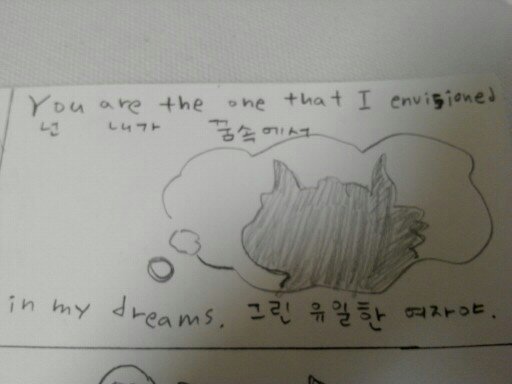 You are the one that I envisioned
넌 내가 꿈속에서
in my dreams. 그린 유일한 여자야.